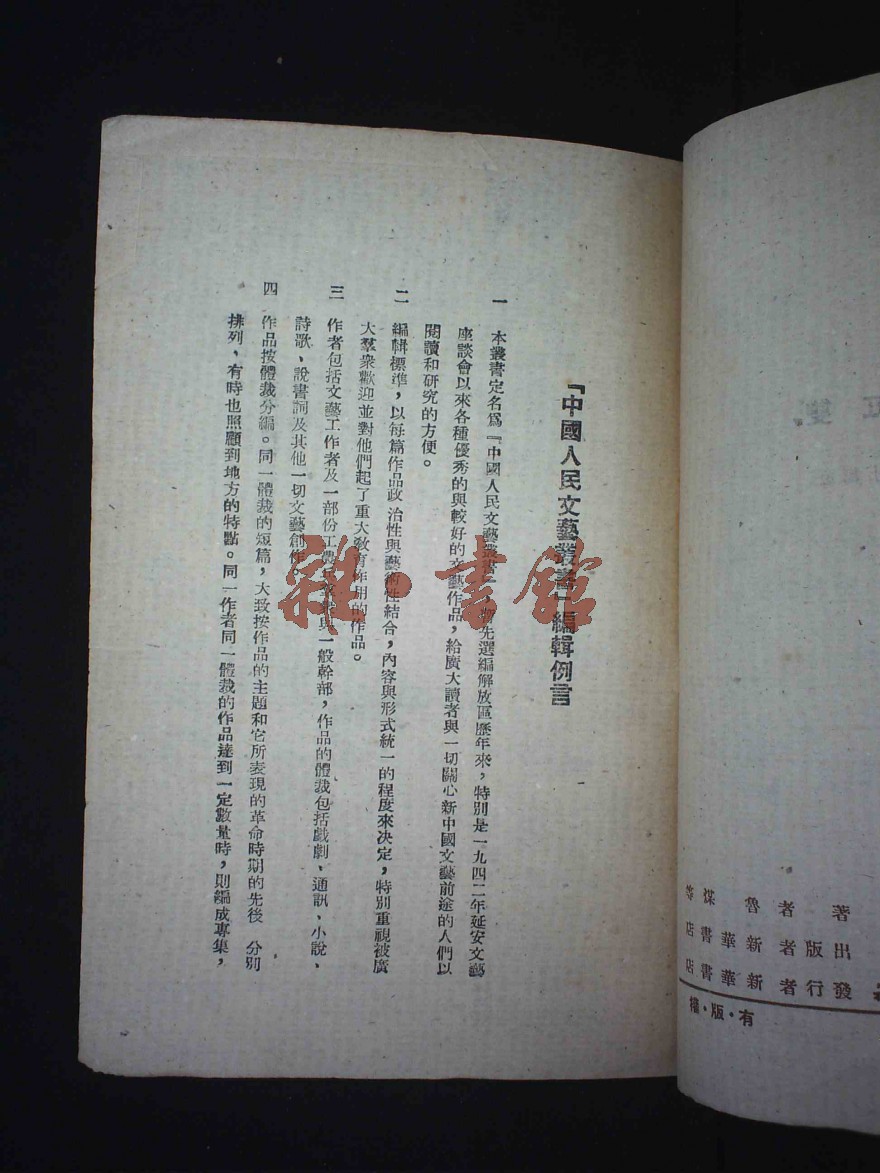 「中國人民文藝叢書」編輯例言
一 本叢書定名爲『中國人民文藝叢書』,先選編解放區歷年來,特別是一九四二年延安文藝
座談會以來各種優秀的與較好的文藝作品,給廣大讀者與一切關心新中國文藝前途的人們以
閱讀和研究的方便。
二 編輯標準,以每篇作品政治性與藝術性結合,內容與形式統一的程度來决定,特別重視被廣
大羣衆歡迎並對他們起了重大教育作用的作品。
三 作者包括文藝工作者及一部份工農兵羣衆與一般幹部,作品的體裁包括戲劇、通訊、小說、
詩歌、說書詞及其他一切文藝創作。
四 作品按體裁分編。同一體裁的短篇,大致按作品的主題和它所表現的革命時期的先後 分別
排列,有時也照顧到地方的特點。同一作者同一體裁的作品達到一定數量時,則編成專集,
雜·書館
雙
等 煤 魯 者 著
店書華新 者版出
店書華新 者行發
權·版·有